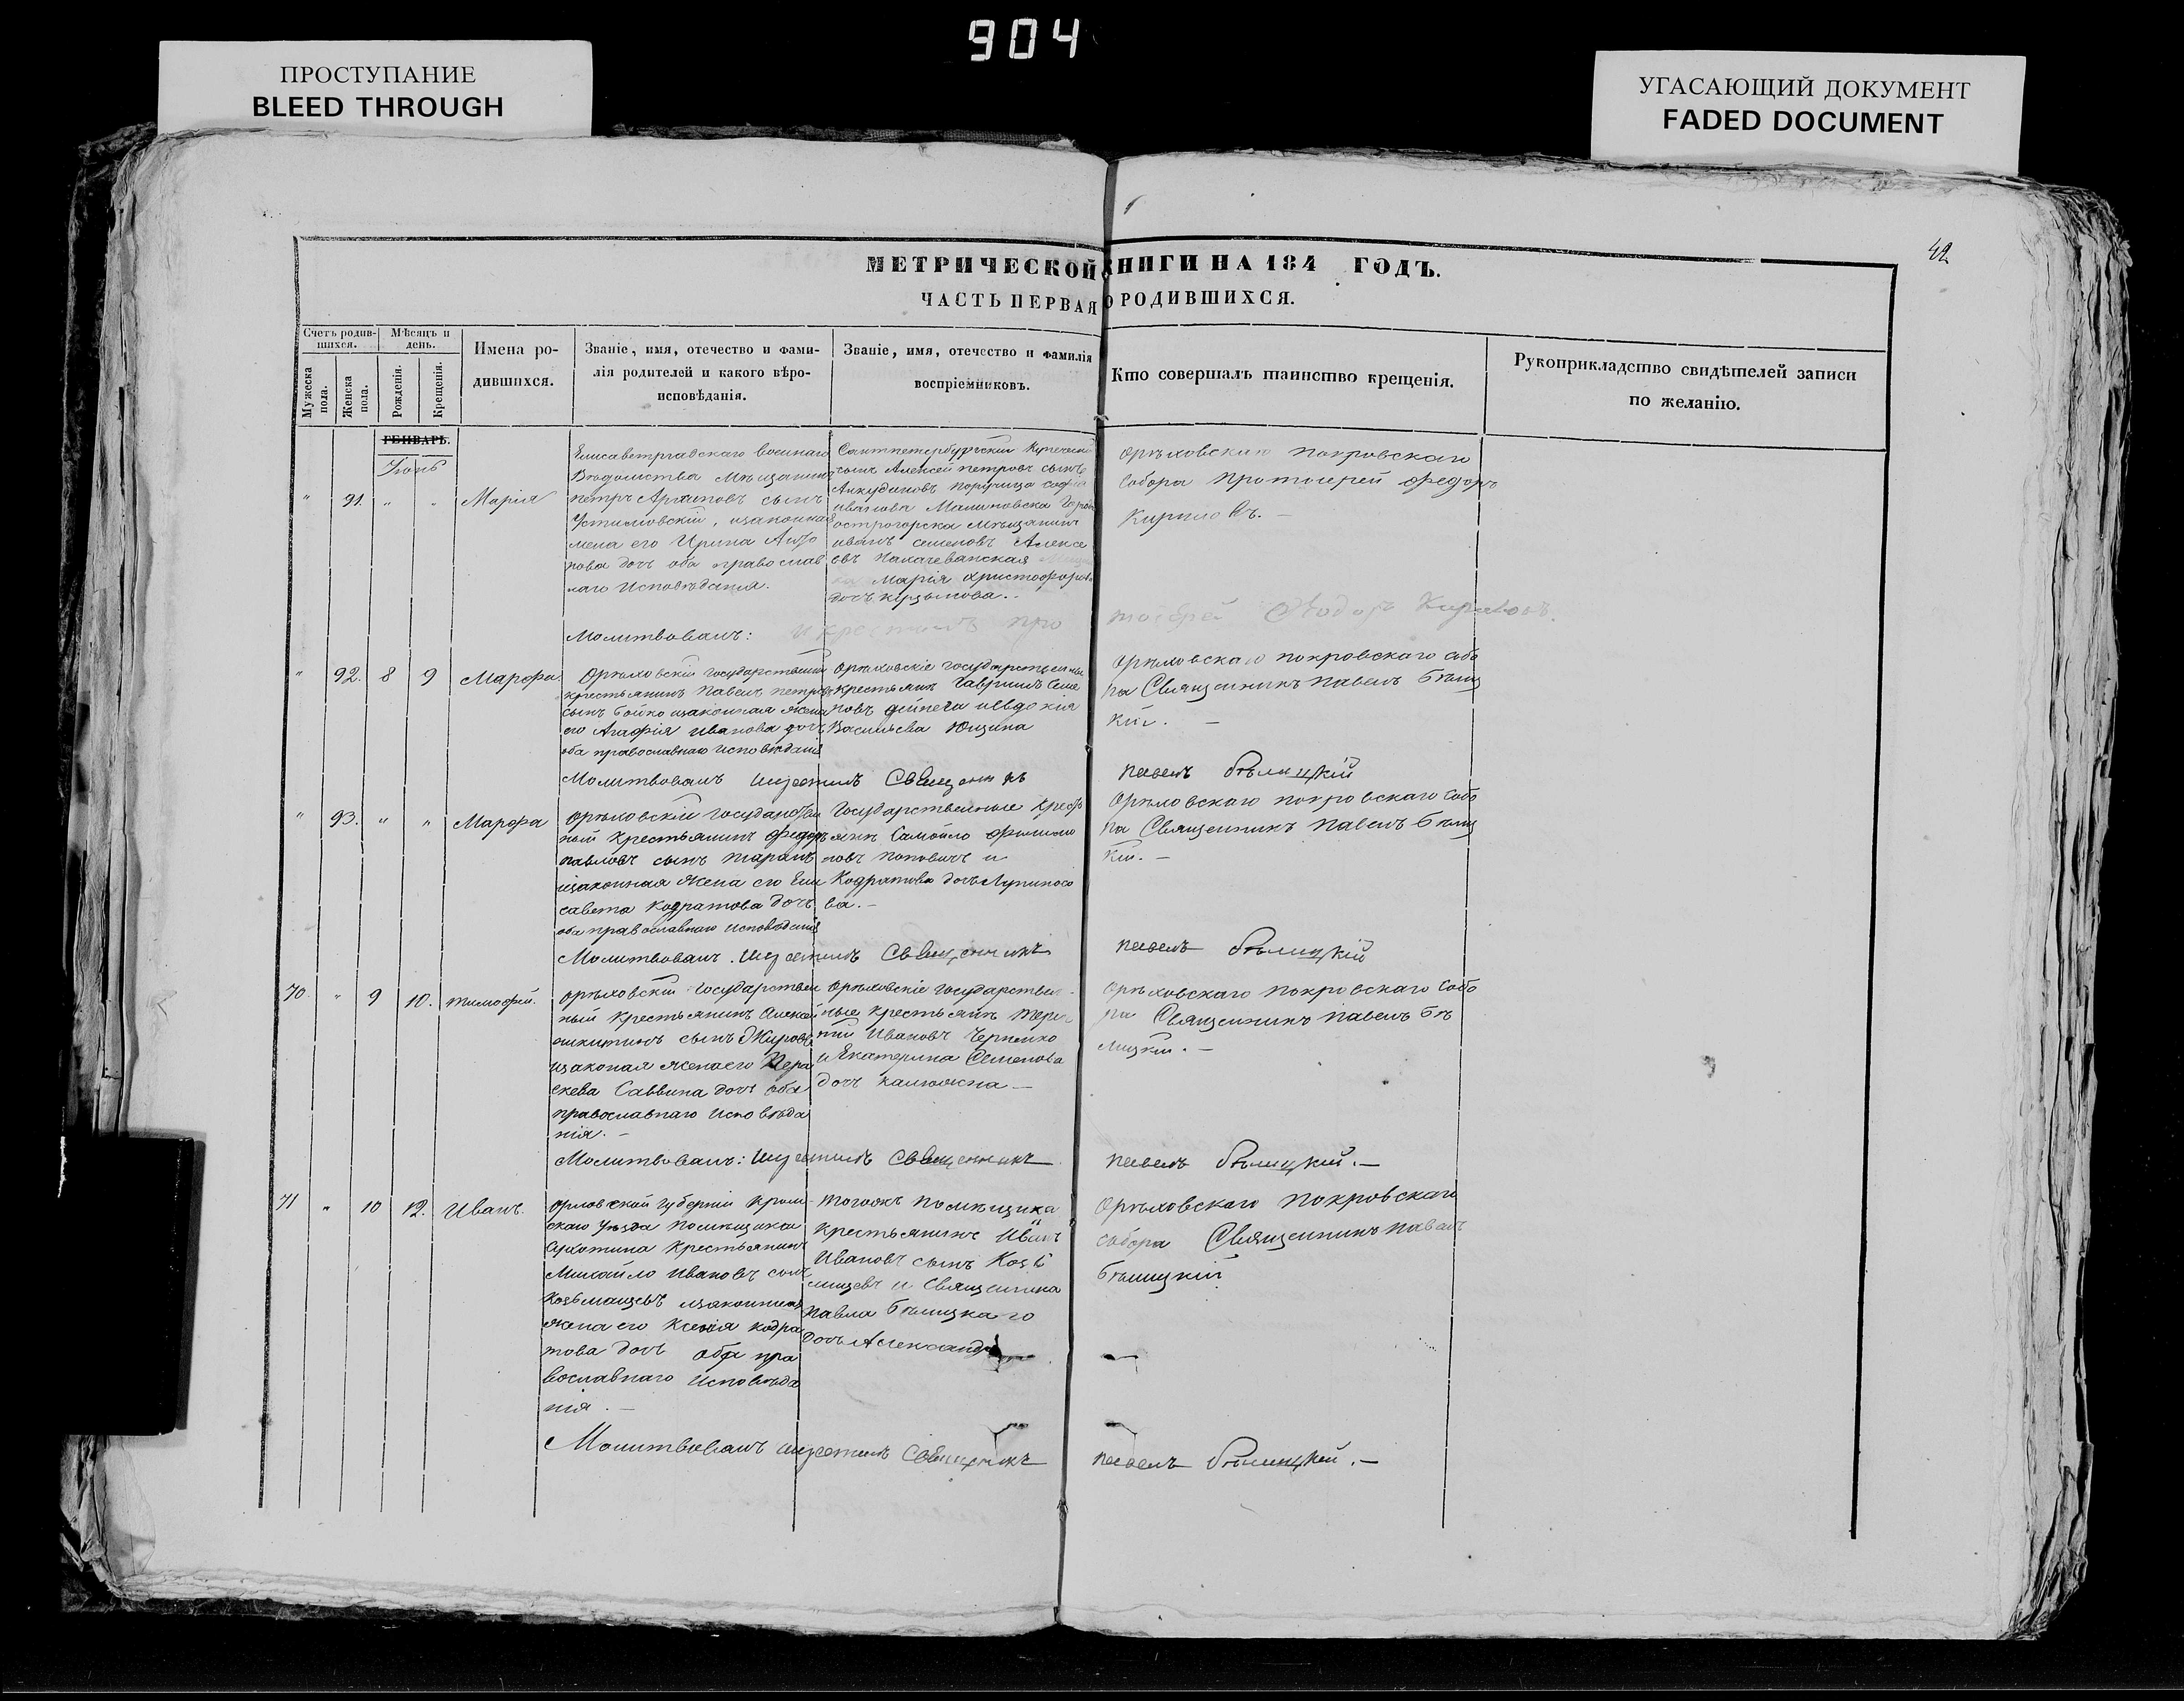 904
ПРОСТУПАНИЕ
BLEED THROUGH
УГАСАЮЩИЙ ДОКУМЕНТ
FADED DOCUMENT
42
МЕТРИЧЕСКОЙ КНИГИ НА 184 ГОДЪ.
ЧАСТЬ ПЕРВАЯ О РОДИВШИХСЯ.
Счетъ родив-
шихся.
Мужеска
пола.
Женска
пола.
Мѣсяцъ и
день.
Рожденія.
Крещенія.
Имена ро-
дившихся.
Званіе, имя, отечество и фами-
лія родителей и какого вѣро-
исповѣданія.
Званіе, имя, отечество и фамилія
воспріемниковъ.
Кто совершалъ таинство крещенія.
Рукоприкладство свидѣтелей записи
по желанію.
ГЕНВАРЬ.
Іюнь
" 91. " " Марія
Елисаветградскаго военнаго
Вѣдомства Мѣщанинъ
петръ Архиповъ сынъ
Устимовскій, изаконная
жена его Ирина
нова дочь оба православ
наго Исповѣданія.
Сантпетербургскій Купеческій
сынъ Алексей петровъ сынъ
Анкудиновъ порутчица Софія
иванова Малиновска Города
острогорска Мѣщанинъ
иванъ семеновъ Алексе
евъ Нахичеванская
Марія христофорова
дочь
орѣховскаго покровскаго
Собора Протоіерей федоръ
Кириловъ. —
Молитвовалъ: и крестилъ про
тоіерей Ѳеодоръ Кириловъ.
" 92. 8 9 Марфа
Орѣховскій государственный
крестьянинъ Павелъ петровъ
сынъ бойко изаконная жена
его Агафія иванова дочь
оба православнаго исповѣданія
Орѣховскіе государственны
крестьянинъ Гаврилъ Семе
новъ дейнега иевдокія
Васильева Ющина
Орѣховскаго покровскаго собо
ра Священникъ павелъ бѣлиц
кій. —
Молитвовалъ икрестилъ Священникъ
павелъ бѣлицкій
" 93. " " Марфа
Орѣховскій государствен
ный крестьянинъ федоръ
павловъ сынъ таранъ
изаконная жена его Ели
савета Кодратова дочь
оба православнаго исповѣданія
Государственные крест
янинъ Самойло филимо
новъ поповичъ и
Кодратова дочь Лупиносо
ва. —
Орѣховскаго покровскаго собо
ра Священникъ павелъ бѣлиц
кій. —
Молитвовалъ. икрестилъ Священникъ
павелъ бѣлицкій
70. " 9 10. тимофей.
орѣховскій Государствен
ный Крестьянинъ Алексей
никитинъ сынъ Жировъ
изаконая женаего Пара
скева Саввина дочь оба
православнаго исповѣда
нія. —
Орѣховскіе государствен-
ные крестьянинъ
тій Ивановъ Черненко
иЕкатерина Семенова
дочь калюжна —
Орѣховскаго покровскаго Собо
ра Священникъ павелъ бѣ
лицкій. —
Молитвовалъ: икрестилъ Священникъ
павелъ бѣлицкій. —
71 " 10 12. Иванъ.
Орловской губерніи кром
скаго уѣзда помѣщика
Сухотина крестьянинъ
Михайло Ивановъ сынъ
Козьмищевъ изаконная
жена его Ксенія кодра
това дочь оба пра
вославнаго исповѣда
нія. —
тогожъ помѣщика
крестьянинъ Иванъ
Ивановъ сынъ Козь
мищевъ и священника
павла бѣлицкаго
дочь Александра
Орѣховскаго Покровскаго
собора Священникъ павелъ
бѣлицкій
Молитвовалъ икрестилъ Священникъ
павелъ бѣлицкій. —